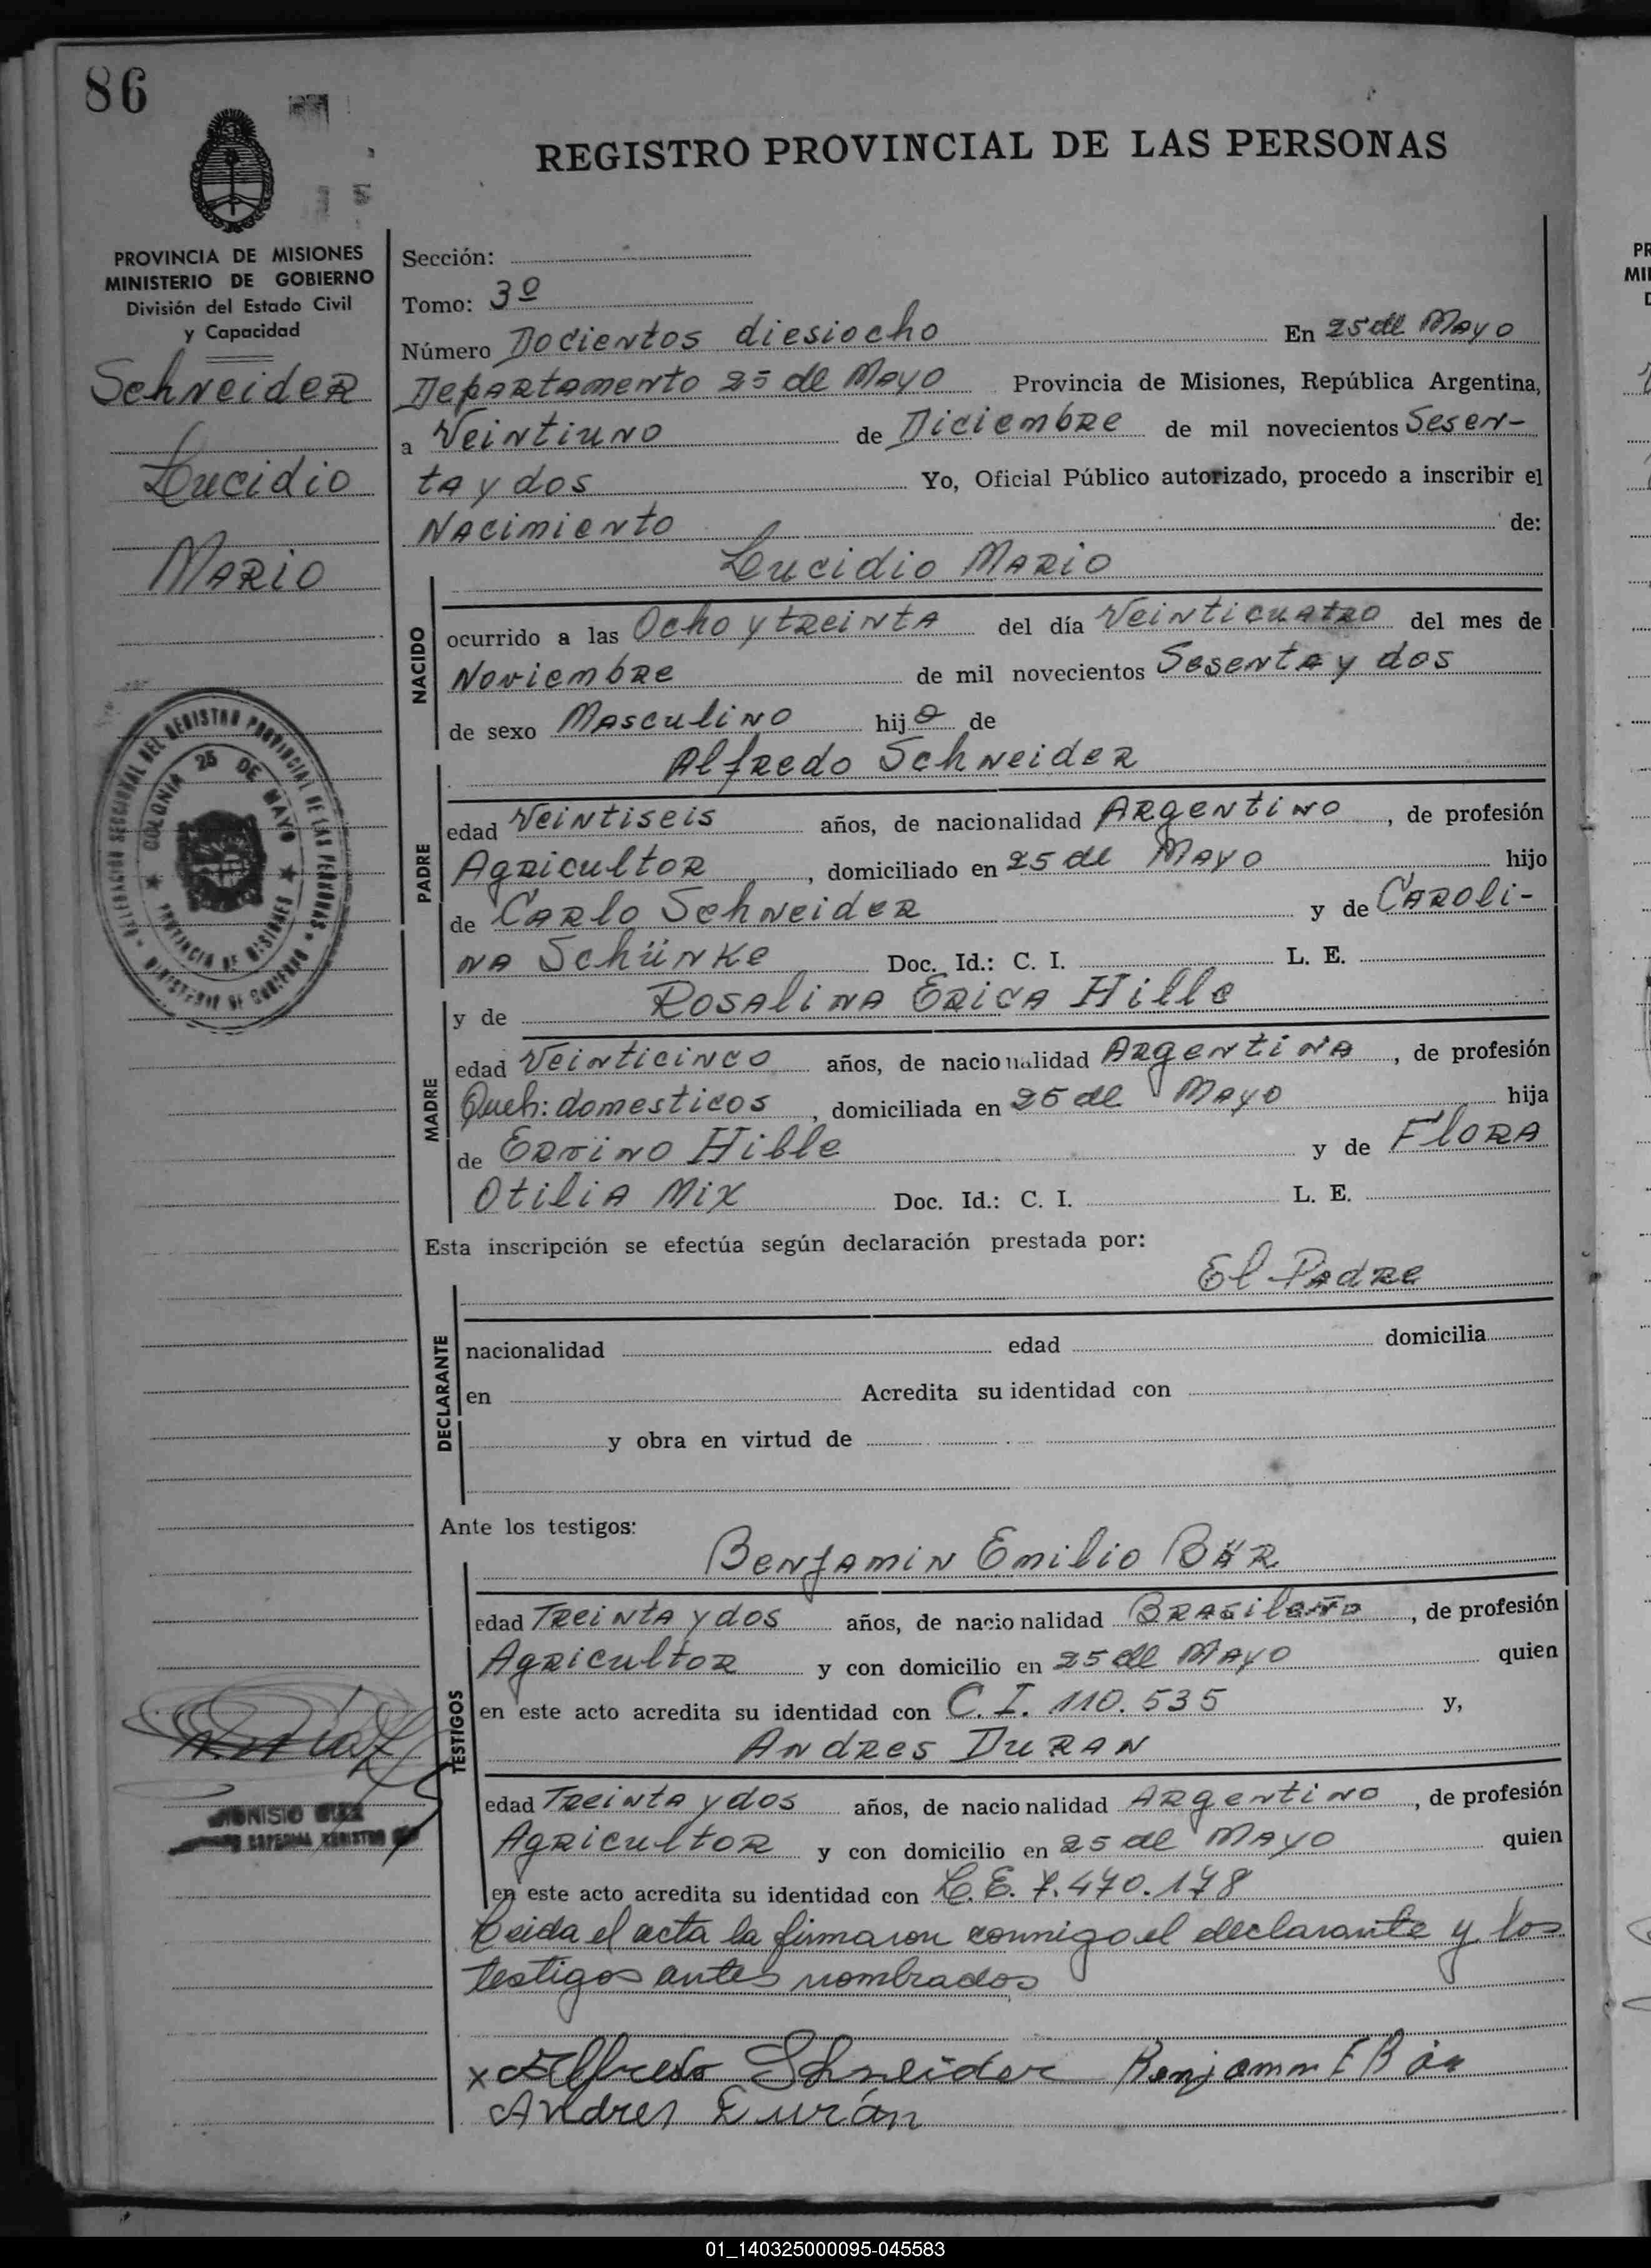 86
REGISTRO PROVINCIAL DE LAS PERSONAS
PROVINCIA DE MISIONES
MINISTERIO DE GOBIERNO
División del Estado Civil
y Capacidad
Schneider
Lucidio
Mario
Sección:
Tomo: 3º
Número Docientos diesiocho En 25 de Mayo
Departamento 25 de Mayo Provincia de Misiones, República Argentina,
a Veintiuno de Diciembre de mil novecientos Sesen-
ta y dos Yo, Oficial Público autorizado, procedo a inscribir el
Nacimiento de:
Lucidio Mario
NACIDO
ocurrido a las Ocho y treinta del día Veinticuatro del mes de
Noviembre de mil novecientos Sesenta y dos
de sexo Masculino hijo de
Alfredo Schneider
PADRE
edad Veintiseis años, de nacionalidad Argentino, de profesión
Agricultor, domiciliado en 25 de Mayo hijo
de Carlo Schneider y de Caroli-
na Schünke Doc. Id.: C. I. L. E.
y de Rosalina Erica Hille
MADRE
edad Veinticinco años, de nacionalidad Argentina, de profesión
Queh: domesticos, domiciliada en 25 de Mayo hija
de Hille y de Flora
Otilia Mix Doc. Id.: C. I. L. E.
Esta inscripción se efectúa según declaración prestada por:
El Padre
DECLARANTE
nacionalidad edad domicilia
en Acredita su identidad con
y obra en virtud de
Ante los testigos:
Benjamin Emilio Bär
TESTIGOS
edad Treinta y dos años, de nacionalidad Brasileño, de profesión
Agricultor y con domicilio en 25 de Mayo quien
en este acto acredita su identidad con C. I. 110.535 y,
Andres Duran
edad Treinta y dos años, de nacionalidad Argentino, de profesión
Agricultor y con domicilio en 25 de Mayo quien
en este acto acredita su identidad con L.E. 7.470.178
Leida el acta la firmaron conmigo el declarante y los
testigos antes nombrados
x Alfredo Schneider Benjamin E Bär
Andres Durán
DELEGACION SECCIONAL DEL REGISTRO PROVINCIAL DE LAS PERSONAS
MINISTERIO DE GOBIERNO
COLONIA 25 DE MAYO
PROVINCIA DE MISIONES
01_140325000095-045583